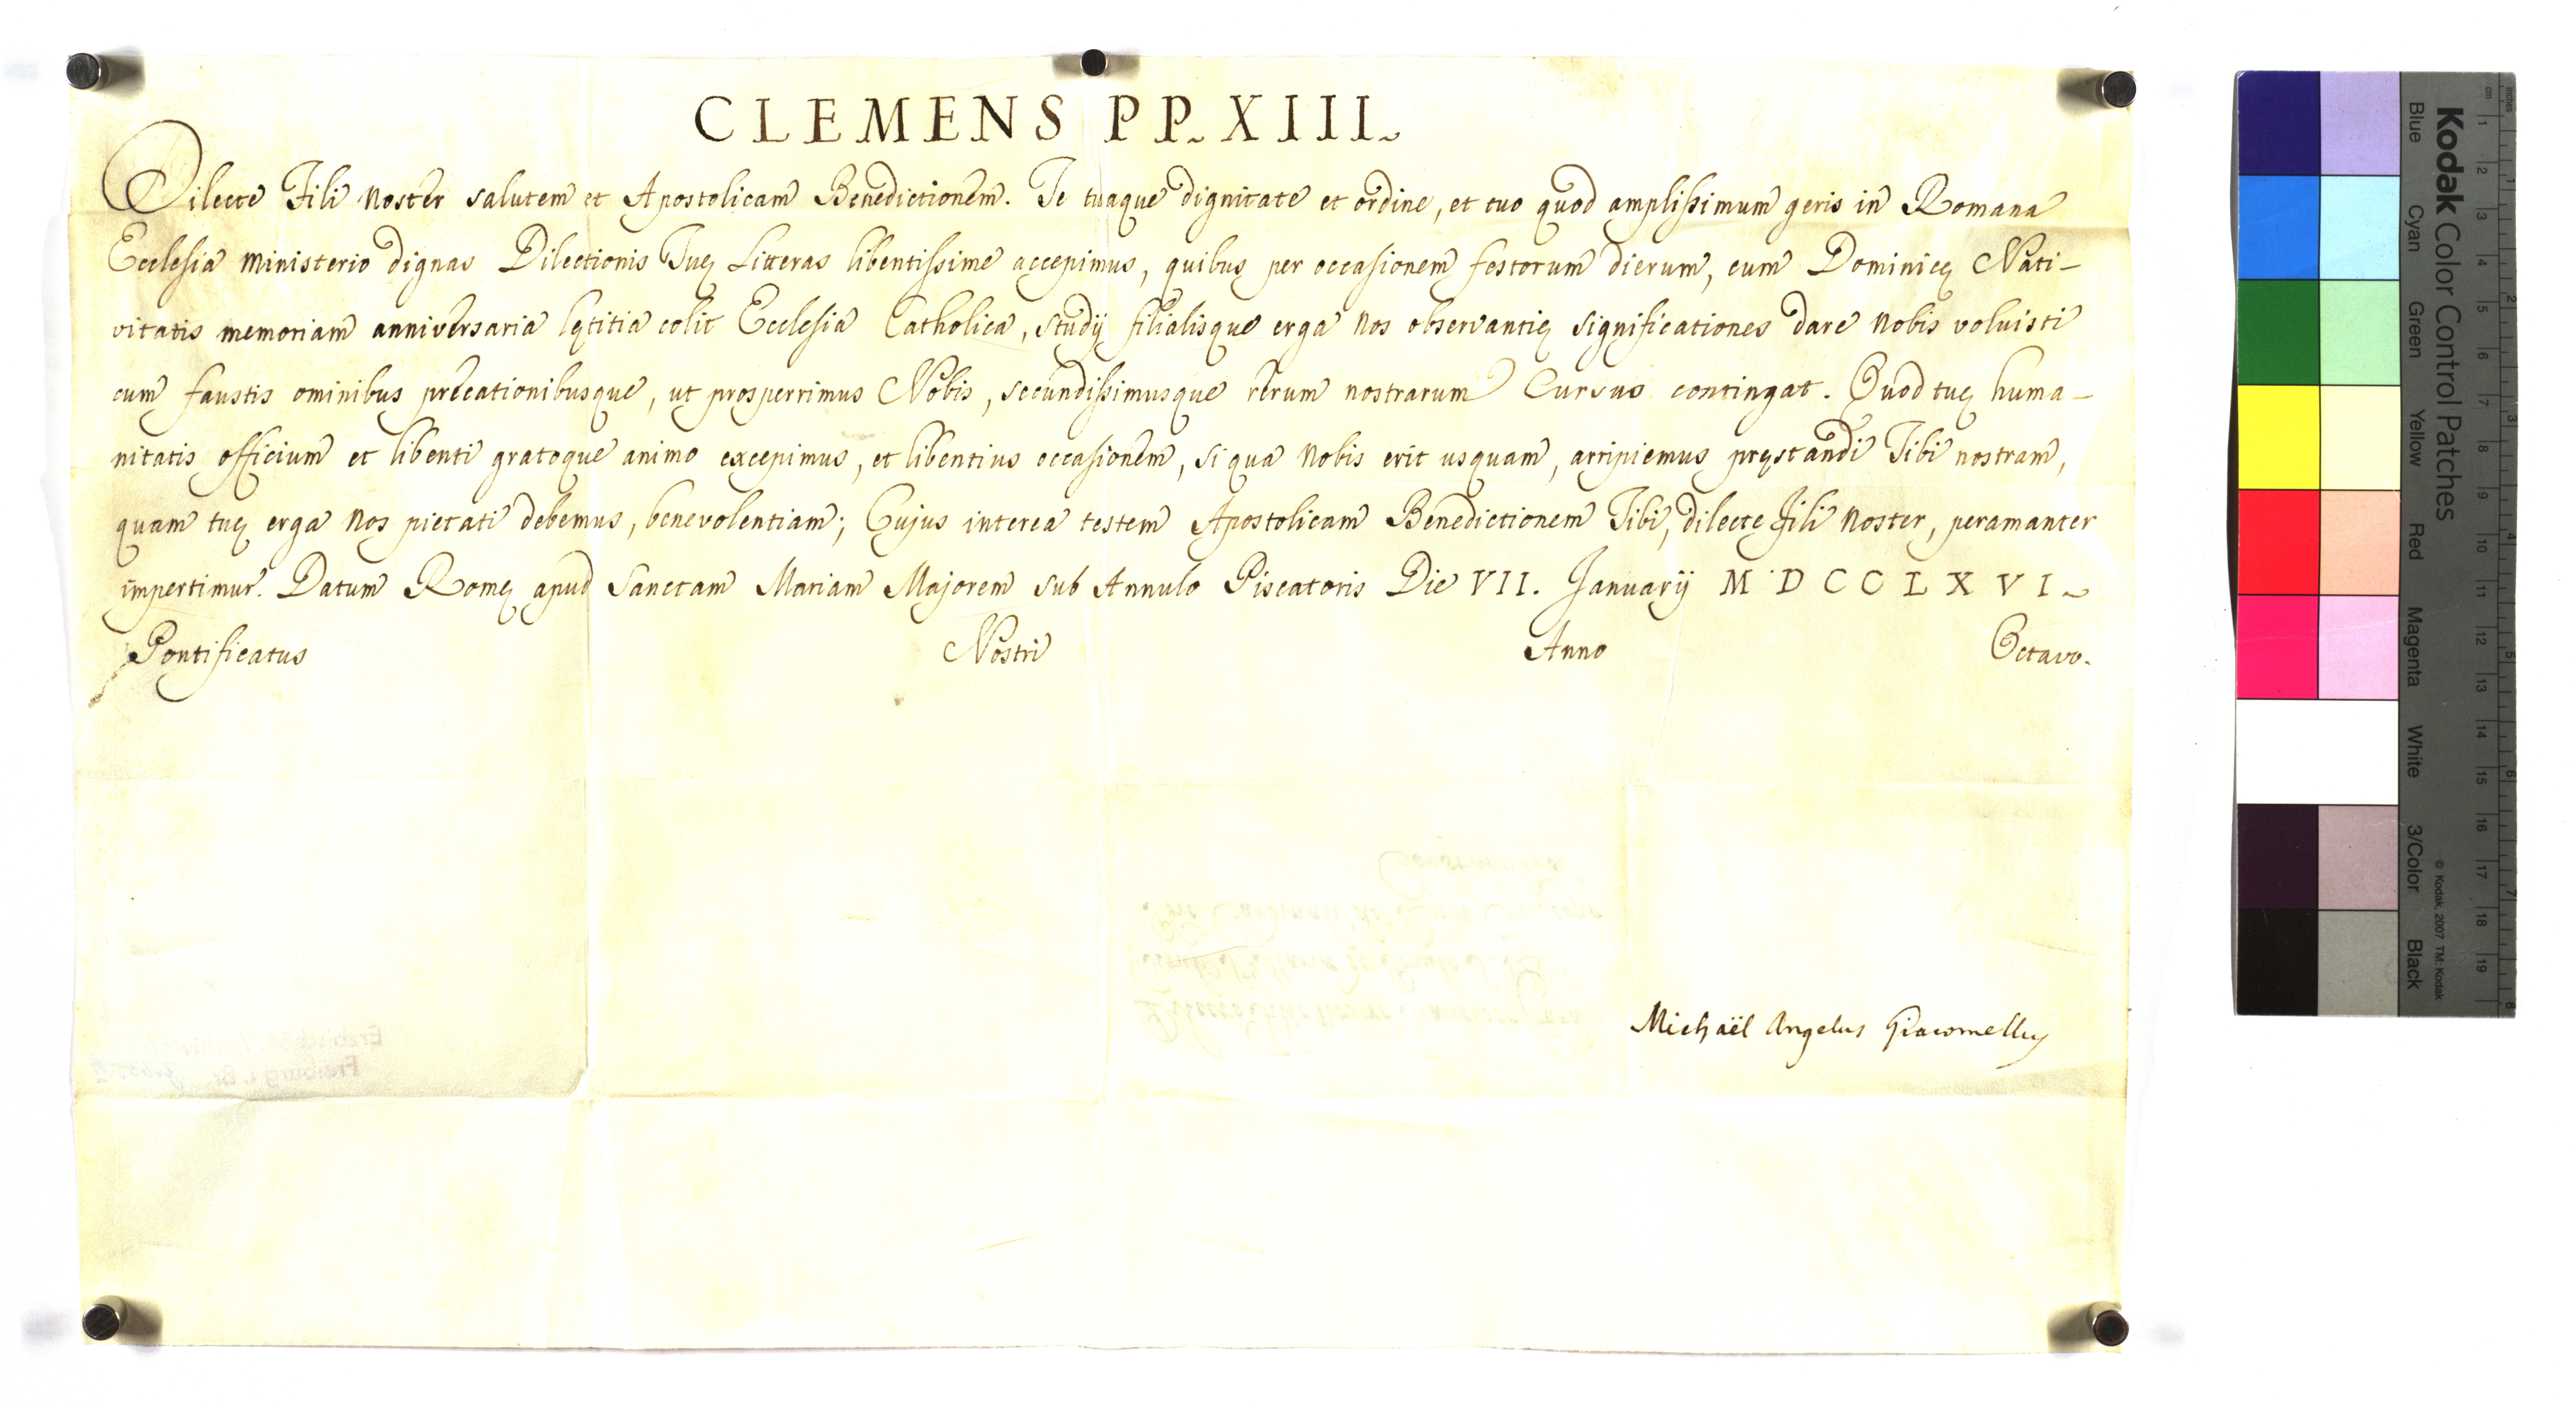 CLEMENS PP. XIII.
Dilecte Fili Noster salutem et Apostolicam Benedictionem. Te tuaque dignitate et ordine, et tuo quod amplissimum geris in Romana
Ecclesia Ministerio dignas Dilectionis Tuę Litteras libentissime accepimus, quibus per occasionem festorum dierum, cum Dominicę Nati-
vitatis memoriam anniversaria lętitia colit Ecclesia Catholica, studij filialisque erga Nos observantię significationes dare Nobis voluisti
cum faustis ominibus precationibusque, ut prosperrimus Nobis, secundissimusque rerum nostrarum Cursus contingat. Quod tuę huma-
nitatis officium et libenti gratoque animo excepimus, et libentius occasionem, si qua Nobis erit usquam, arripiemus pręstandi Tibi nostram,
quam tuę erga Nos pietati debemus, benevolentiam; Cujus interea testem Apostolicam Benedictionem Tibi, dilecte Fili Noster, peramanter
impertimur. Datum Romę apud Sanctam Mariam Majorem sub Annulo Piscatoris Die VII. Januarij MDCCLXVI.
Pontificatus Nostri Anno Octavo.
Michaël Angelus Giacomellus
Kodak Color Control Patches
Blue Cyan Green Yellow Red Magenta White 3/Color Black
© Kodak, 2007 TM: Kodak
cm 1 2 3 4 5 6 7 8 9 10 11 12 13 14 15 16 17 18 19
inches 1 2 3 4 5 6 7 8